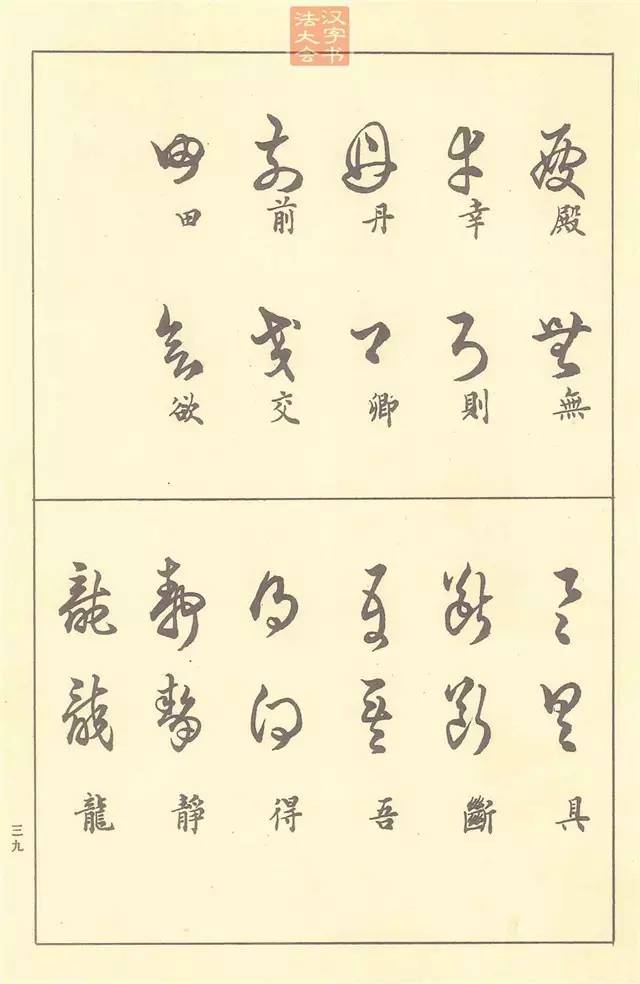 汉字书
法大会
殿 無
幸 則
丹 卿
前 交
田 欲
具
斷
吾
得
靜
龍
三九